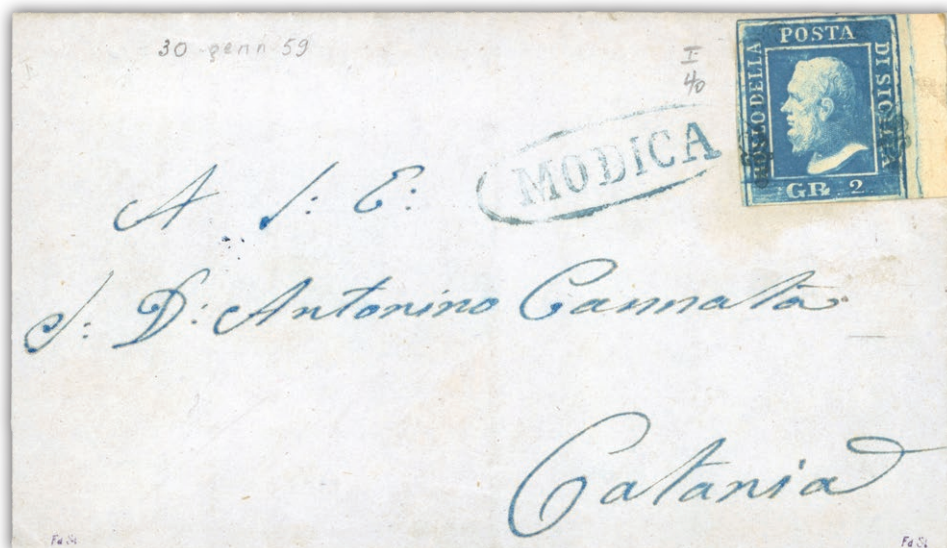 30 genn 59
I
40
POSTA
BOLLO DELLA
DI SICILIA
GR. 2
MODICA
A S: E:
S: D: Antonino Cannata
Catania